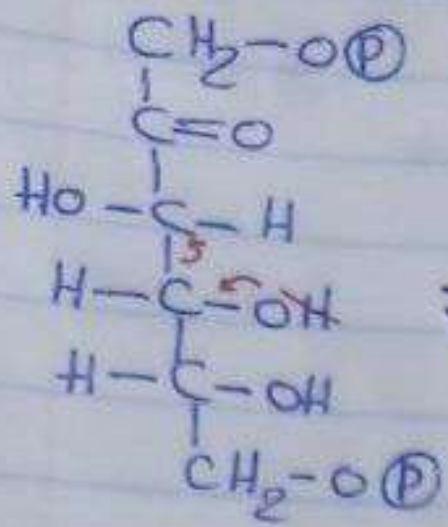 CH₂-O Ⓟ
C=O
HO-C-H
H-C-OH
H-C-OH
CH₂-O Ⓟ